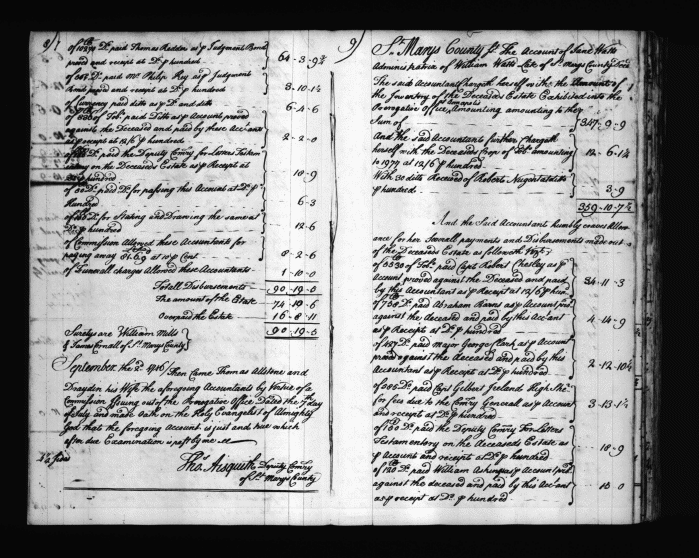 8/1
of 1027 lb Do. paid Thomas Redder as p Judgment Bond
proved and receipt at Do. p hundred
64-3-9¾
of 56 Do. paid Mr. Philip Key as p Judgment
bond paid and receipt at Do. p hundred
3-10-1½
of Currency paid ditto as p Do. and ditto
6-4-6
of Tobo. paid Ditto as p Account proved
against the Deceased and paid by these Accts.
as p receipt at 12/6 p hundred
2-2-0
Do. paid the Deputy Comry for Letters Testam
tary on the Deceaseds Estate as p Receipt at
Do. p hundred
10-9
of 50 Do. paid Do. for passing this Account at Do. p
Hundred
6-3
Do. for Stating and Drawing the same at
Do. p hundred
12-6
of Commission Allowed these Accountants for
paying away 81.6.9 at 10 p Cent
8-2-6
of Funerall charges Allowed these Accountants
1-10-0
Totall Disbursements
90-19-0
The amount of the Estate
74-10-6
Overpaid the Estate
16-8-11
90-19-5
Suretys are William Mills
& James Cornall of St. Marys County
September the 2d. 1746 Then Came Thomas Allstone and
Draydin his Wife the aforegoing Accountants by Vertue of a
Commission Issuing out of the Prerogative Office Dated the 7th day
of July and made Oath on the Holy Evangelist of Almighty
God that the foregoing Account is just and true which
after due Examination is past by me
Tho. Aisquith Deputy Comry
of St. Marys County
9/
St. Marys County Ss. The Account of Jane Watts
Administratrix of William Watts Late of St. Marys County Decd.
The said Accountant Chargeth herself with the Amount of
the Inventory of the Deceaseds Estate Exhibited into the
Prerogative Office, Amounting amounting to the
Annapolis
Sum of
347-9-9
And the said Accountant further Chargeth
herself with the Deceaseds Crop of Tobo. amounting
to 1937 at 12/6 p hundred
12-6-1¼
With 30 ditto Received of Robert Nugent at ditto
p hundred
3-9
359-10-7½
And the Said Accountant humbly craves Allow
ance for her Severall payments and Disbursements made out
of the Deceaseds Estate as followeth Vizt.
of 5530 lb Tobo. paid Capt. Robert Chesley as p
Account proved against the Deceased and paid
by this Accountant as p Receipt at 12/6 p hund.
34-11-3
of 758 Do. paid Abraham Barns as p Account proved
against the deceased and paid by this Acc'ant
as p Receipt at Do. p hundred
4-14-9
of 497 Do. paid major George Clark as p Account
proved against the deceased and paid by this
Accountant as p Receipt at Do. p hundred
2-12-10½
of 585 Do. paid Capt. Gilbert Ireland High She.
for fees due to the Comry Generall as p Account
and receipt at Do. p hundred
3-13-1½
of 150 Do. paid the Deputy Comry for Letters
Testamentory on the Deceaseds Estate as
p Account and receipt at Do. p hundred
18-9
of 120 Do. paid William Ashings as p Account proved
against the deceased and paid by this Acc'ant
as p receipt at Do. p hundred
15-0